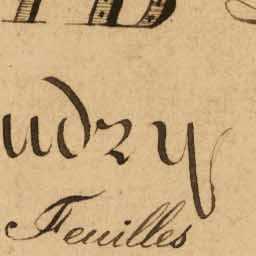 udry
Feuilles